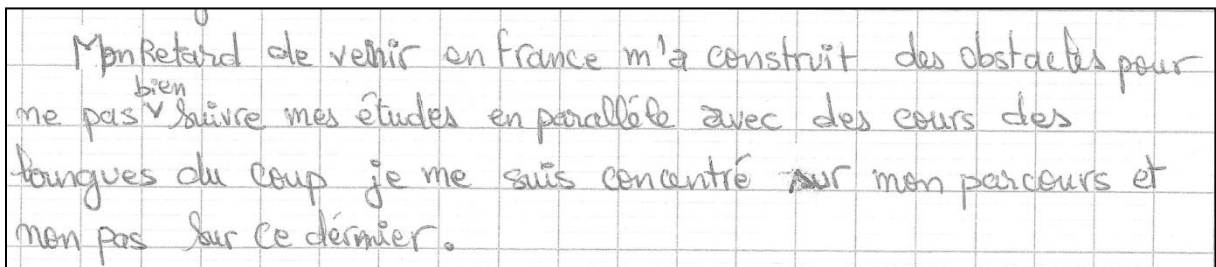 Mon Retard de venir en france m'a construit des obstacles pour
ne pas bien suivre mes études en paralléle avec des cours des
langues du coup je me suis concentré sur mon parcours et
non pas sur ce dérnier.